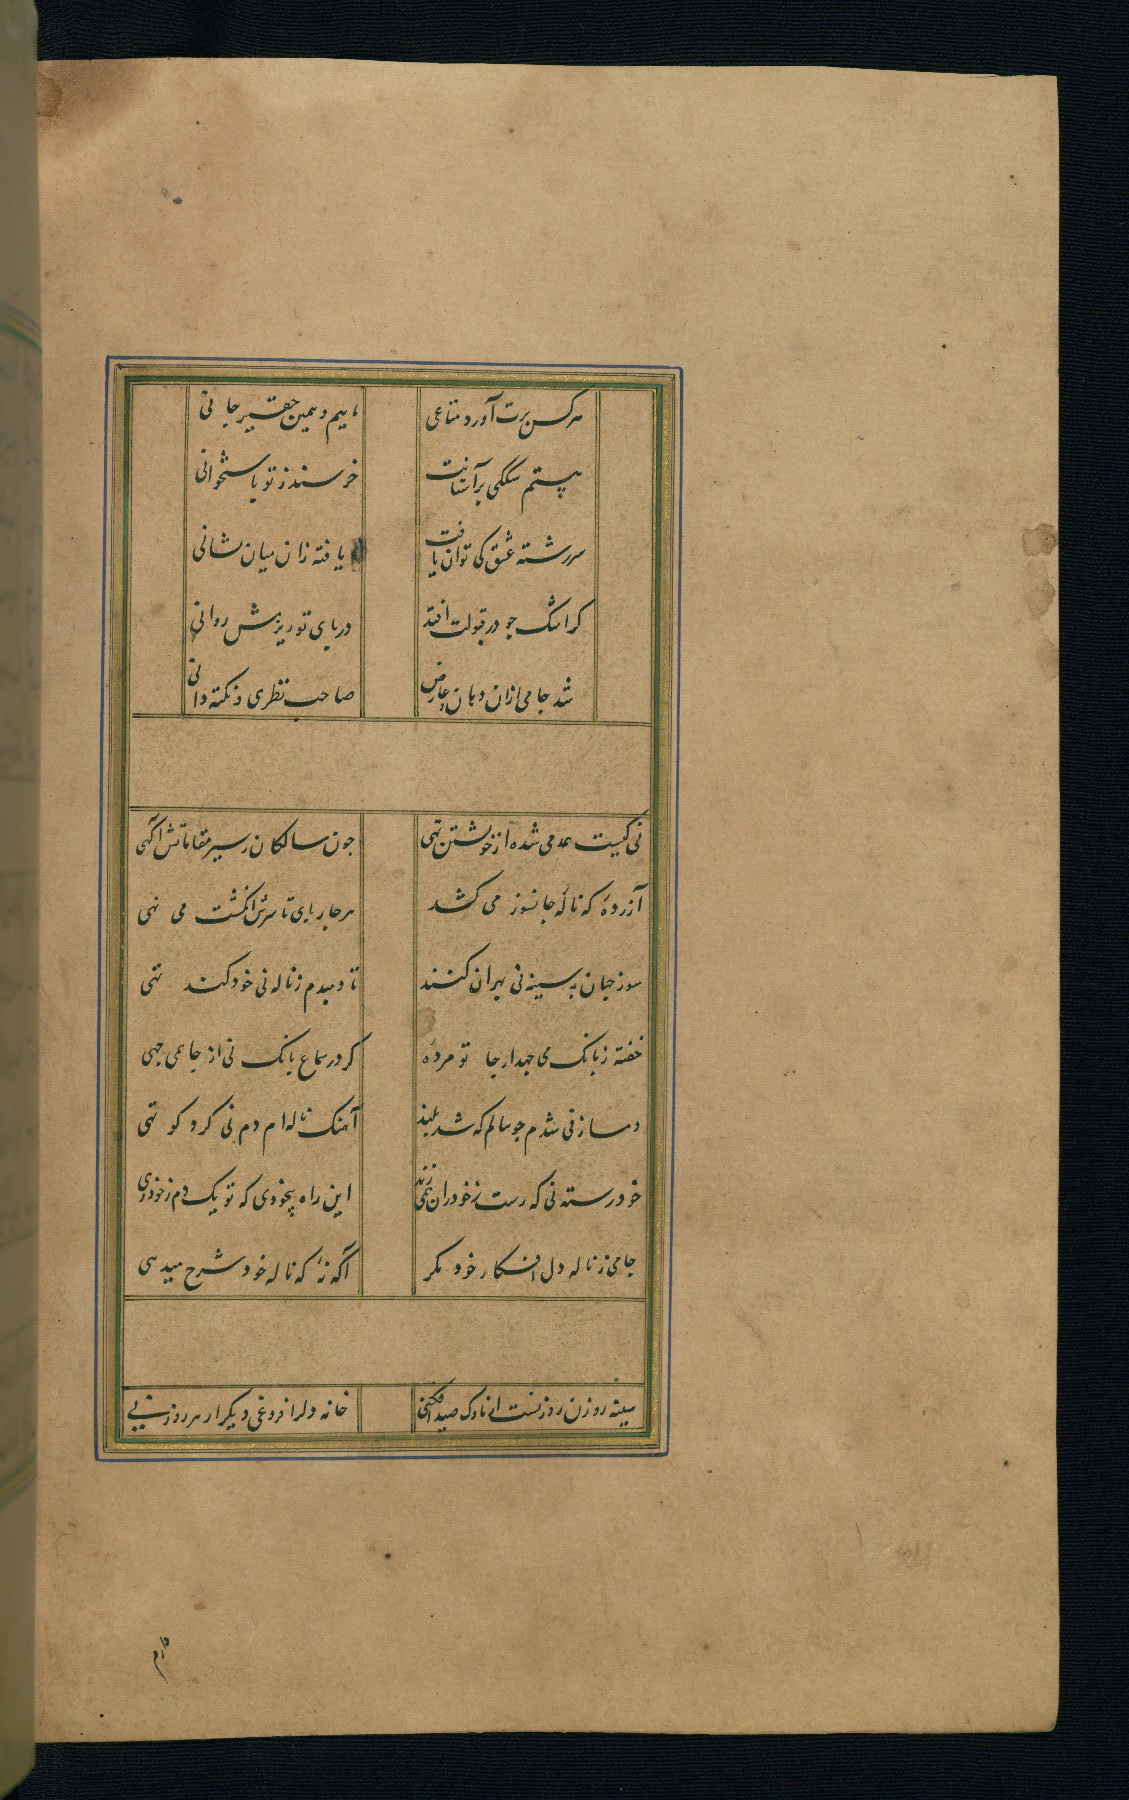 هر کس برت آورد متاعی ماییم و همین حقیر جانی
هستم سگکی بر آستانت خرسند ز تو باستخوانی
سررشته عشق کی توان یافت نا یافته زان میان نشانی
کر اشک جو در قبولت افتد دریای تو ریزمش روانی
شد جامی ازان دهان و عارض صاحب نظری و نکته دانی
نی کیست همدمی شده از خویشتن تهی جون سالکان ز سیر مقاماتش اگهی
آزردهٔ که نالهٔ جانسوز می کشد هر جا ز پای تا سرش انکشت می نهی
سوز جهان به سینه نی بهر آن کنند تا دمبدم ز ناله نی خود کند تهی
خفته ز بانک می جهد از جا تو مردهٔ کر در سماع بانک نی از جا نمی جهی
دمساز نی شدم جو نالم که شد بلند آهنک ناله ام دم نی کرد کو تهی
خود رسته نی که رست ز خود ران نمی زند این راه بیخودی که تو یک دم ز خود رهی
جامی ز ناله دل افکار خود مکر آکه نهٔ که ناله خود شرح میدهی
سینه روزن روزنست از ناوک صید افکنی خانه دلرا فروغی دیکر از هر روزنی